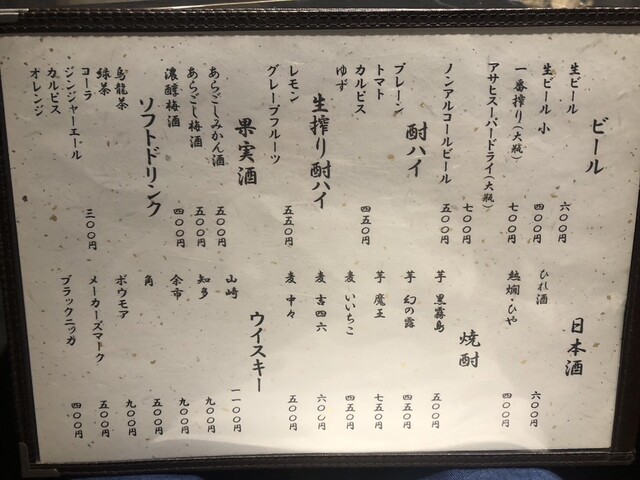 ビール
生ビール 六〇〇円
生ビール 小 四〇〇円
一番搾り(大瓶) 七〇〇円
アサヒスーパードライ(大瓶) 七〇〇円
ノンアルコールビール 五〇〇円
酎ハイ
プレーン
トマト
カルピス 四五〇円
ゆず
生搾り酎ハイ
レモン 五五〇円
グレープフルーツ
果実酒
あらごしみかん酒 五〇〇円
あらごし梅酒 五〇〇円
濃醇梅酒 四〇〇円
ソフトドリンク
烏龍茶
緑茶
コーラ 三〇〇円
ジンジャーエール
カルピス
オレンジ
日本酒
ひれ酒 六〇〇円
熱燗・ひや 四〇〇円
焼酎
芋 黒霧島 五〇〇円
芋 幻の露 四五〇円
芋 魔王 七五〇円
麦 いいちこ 四五〇円
麦 吉四六 六〇〇円
麦 中々 五〇〇円
ウイスキー
山崎 一一〇〇円
知多 九〇〇円
余市 九〇〇円
角 五〇〇円
ボウモア 九〇〇円
メーカーズマドク 五〇〇円
ブラックニッカ 四〇〇円